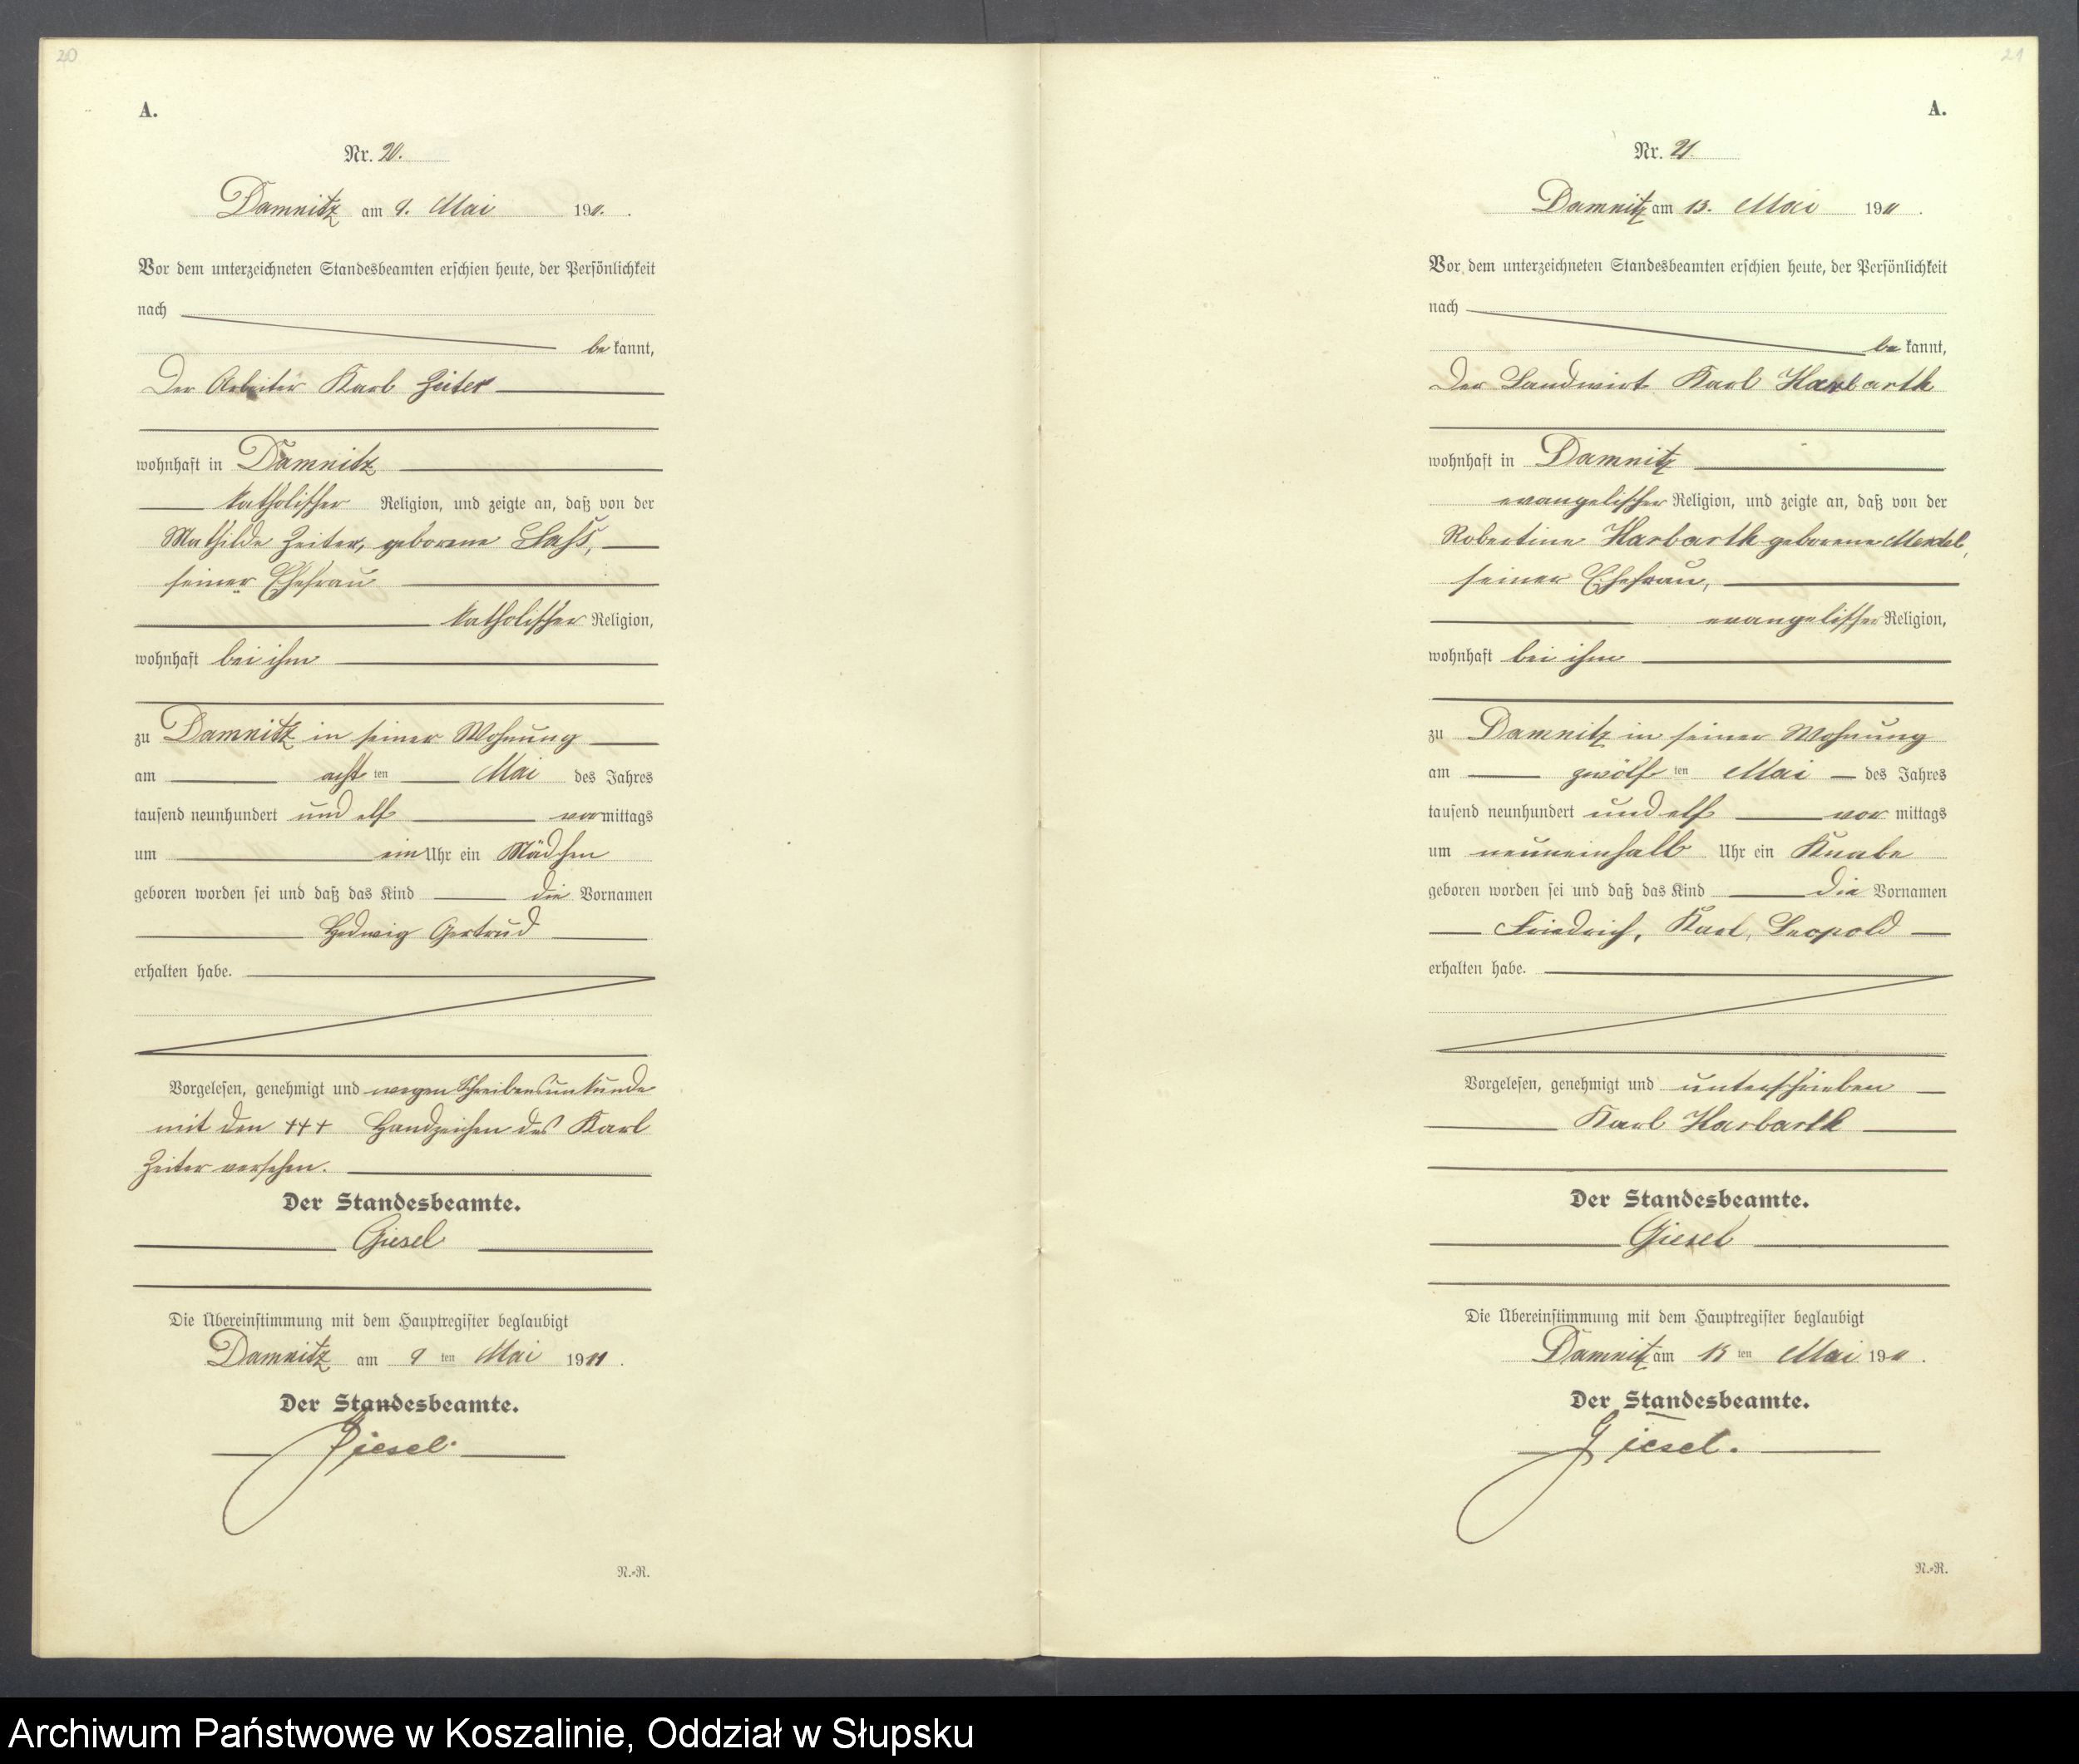 20
A.
Nr. 20.
Damnitz am 9. Mai 1911.
Vor dem unterzeichneten Standesbeamten erschien heute, der Persönlichkeit
nach
be kannt,
Der Arbeiter Karl Zeiter
wohnhaft in Damnitz
katholischer Religion, und zeigte an, daß von der
Mathilde Zeiter, geborene
seiner Ehefrau
katholischer Religion,
wohnhaft bei ihm
zu Damnitz in seiner Wohnung
am acht ten Mai des Jahres
tausend neunhundert und elf vormittags
um ein Uhr ein Mädchen
geboren worden sei und daß das Kind die Vornamen
Hedwig Gertrud
erhalten habe.
Vorgelesen, genehmigt und wegen Schreibensunkunde
mit den +++ Handzeichen des Karl
Zeiter versehen.
Der Standesbeamte.
Giesel
Die Übereinstimmung mit dem Hauptregister beglaubigt
Damnitz am 9 ten Mai 1911.
Der Standesbeamte.
Giesel.
N.-R.
21
A.
Nr. 21.
Damnitz am 13. Mai 1911.
Vor dem unterzeichneten Standesbeamten erschien heute, der Persönlichkeit
nach
be kannt,
Der Landwirt Karl Harbarth
wohnhaft in Damnitz
evangelischer Religion, und zeigte an, daß von der
Robertine Harbarth geborene Mendel,
seiner Ehefrau,
evangelischer Religion,
wohnhaft bei ihm
zu Damnitz in seiner Wohnung
am zwölf ten Mai des Jahres
tausend neunhundert und elf vor mittags
um neuneinhalb Uhr ein Knabe
geboren worden sei und daß das Kind die Vornamen
Friedrich, Karl, Leopold
erhalten habe.
Vorgelesen, genehmigt und unterschrieben
Karl Harbarth
Der Standesbeamte.
Giesel
Die Übereinstimmung mit dem Hauptregister beglaubigt
Damnitz am 13 ten Mai 1911.
Der Standesbeamte.
Giesel.
N.-R.
Archiwum Państwowe w Koszalinie, Oddział w Słupsku